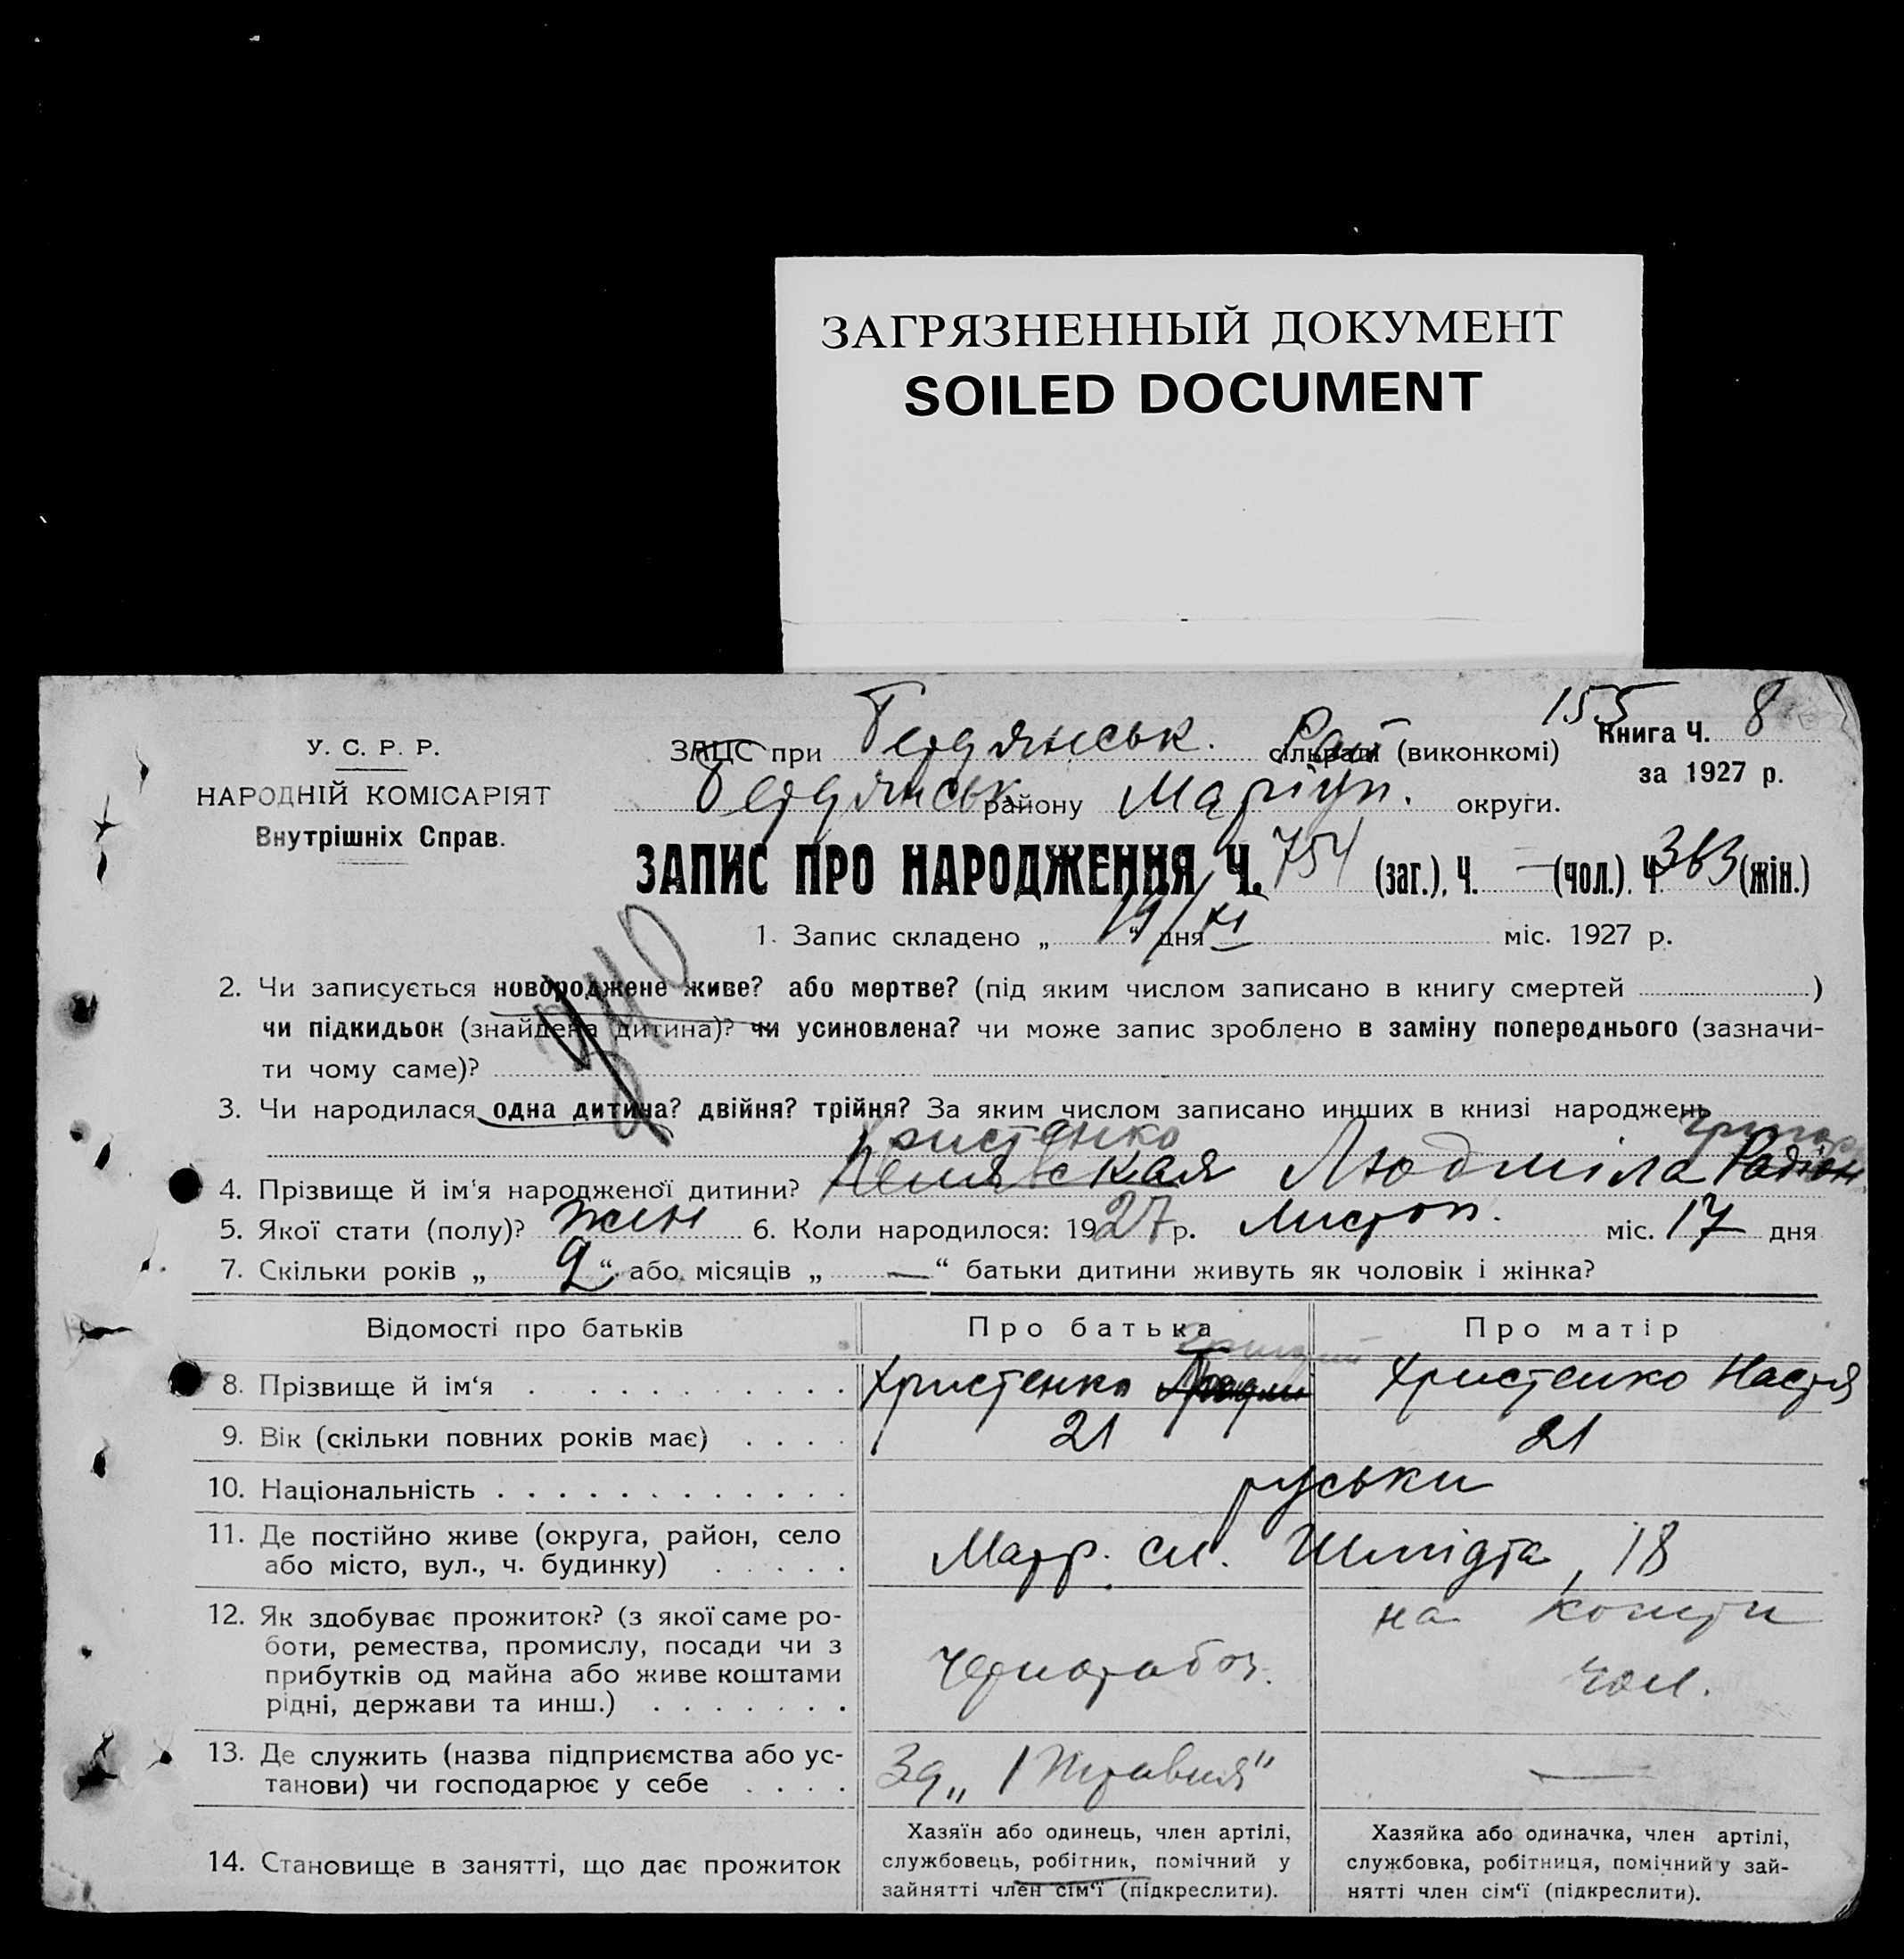 ЗАГРЯЗНЕННЫЙ ДОКУМЕНТ
SOILED DOCUMENT
155
У. С. Р. Р.
НАРОДНІЙ КОМІСАРІЯТ
Внутрішніх Справ.
ЗАЦС при Бердянськ. Рай сільраді (виконкомі)
Книга Ч. 8
за 1927 р.
Бердянськ району Маріуп. округи.
ЗАПИС ПРО НАРОДЖЕННЯ Ч. 754 (заг.), Ч. — (чол.), Ч. 363 (жін.)
1. Запис складено „ 19 “ дня XI міс. 1927 р.
2. Чи записується новороджене живе? або мертве? (під яким числом записано в книгу смертей )
чи підкидьок (знайдена дитина)? чи усиновлена? чи може запис зроблено в заміну попереднього (зазначи-
ти чому саме)?
3. Чи народилася одна дитина? двійня? трійня? За яким числом записано инших в книзі народжень
Христенко
4. Прізвище й ім‘я народженої дитини? Людміла Радіон
5. Якої стати (полу)? жін 6. Коли народилося: 1927 р. Листоп. міс. 17 дня
7. Скільки років „ 2 “ або місяців „ — “ батьки дитини живуть як чоловік і жінка?
Відомості про батьків Про батька Про матір
8. Прізвище й ім‘я Христенко Христенко Настя
9. Вік (скільки повних років має) 21 21
10. Національність руськи
11. Де постійно живе (округа, район, село
або місто, вул., ч. будинку) сл. Шмідта, 18
12. Як здобуває прожиток? (з якої саме ро-
боти, ремества, промислу, посади чи з
прибутків од майна або живе коштами
рідні, держави та инш.) чернороб. на кошти
чол.
13. Де служить (назва підприємства або ус-
танови) чи господарює у себе Зд „1 Травня“ —
14. Становище в занятті, що дає прожиток
Хазяїн або одинець, член артілі,
службовець, робітник, помічний у
зайнятті член сім‘ї (підкреслити).
Хазяйка або одиначка, член артілі,
службовка, робітниця, помічний у зай-
нятті член сім‘ї (підкреслити).